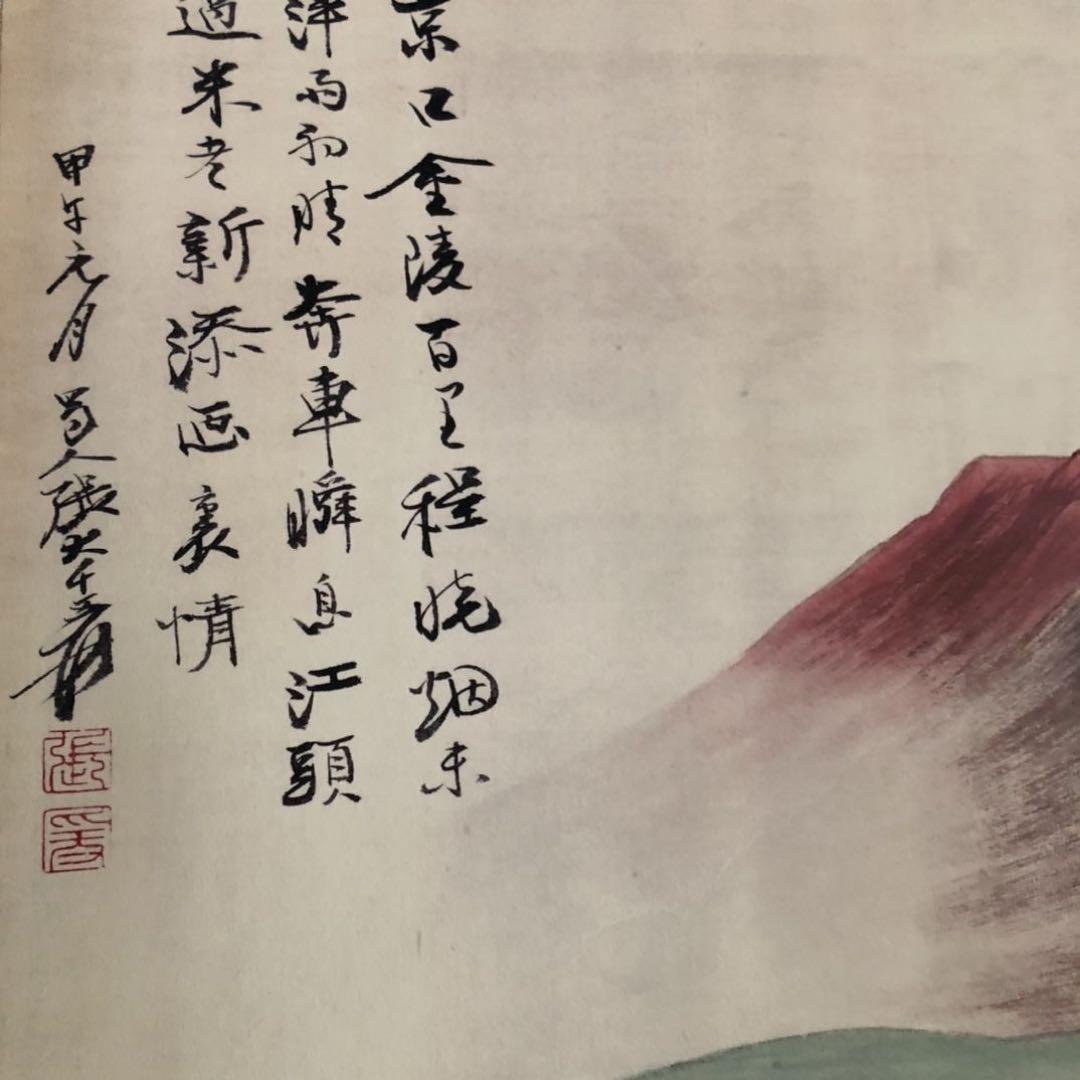 京口金陵百里程晓烟未
泮雨初晴奔車瞬息江頭
過米老新添画裏情
甲午元月蜀人張大千爰
張爰